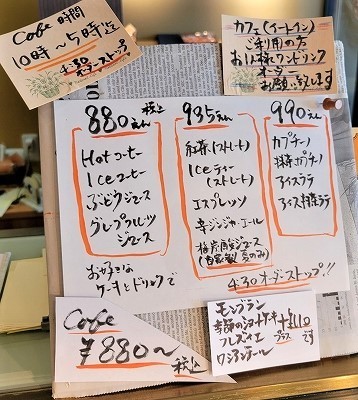 Cafe 時間
10時〜5時迄
4:30 オーダーストップ
カフェ(イートイン)
ご利用の方
お1人様ワンドリンク
オーダー
お願い致します
880えん 税込
Hotコーヒー
Iceコーヒー
ぶどうジュース
グレープフルーツ
ジュース
お好きな
ケーキとドリンクで
935えん
紅茶(ストレート)
Iceティー
(ストレート)
エスプレッソ
辛ジンジャーエール
(自家製 夏のみ)
990えん
カプチーノ
抹茶カプチーノ
アイスラテ
アイス抹茶ラテ
4:30 オーダーストップ!!
Cafe
¥880〜 税込
モンブラン
季節のショートケーキ
フレズィエ
+110
プラス です